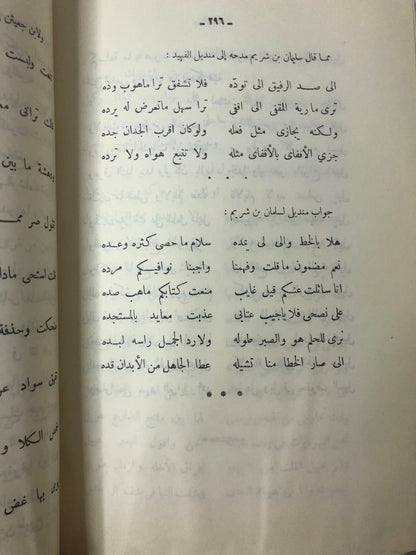 - ٢٩٦ -
مما قال سليمان بن شريم مدحه إلى منديل الفهيد :
الى صد الرفيق الى تودّه فلا تشفق ترا ماهوب وده
ترى مارية المقفى الى اقفى ترا سهل ماتعرض له يرده
ولكنه يجازى مثل فعله ولوكان اقرب الجدان جده
جزي الأقفاى بالأقفاى مثله ولا تتبع هواه ولا ترده
جواب منديل لسلمان بن شريم :
هلا بالخط والى لى يمده سلام ما حصى كثره وعده
نعم مضمون ما قلت وفهمنا واجبنا نوافيكم مرده
انا سائلت عنكم قيل غايب منعت كتابكم ماهب صده
على نصحى فلا ياجيب عتابى عذبت معايد بالمستجده
نرى للحلم هو والصبر طوله ولارد الجمل راسه لبده
الى صار الخطا منا تشيله عطا الجاهل من الأبدان قده
ولابن جعيثن
تمت وليست
قلت تراني
ودهشة ما بين
قول صر
نحكت وحذفة
تبن سواد
غض الكلا و
بها غض